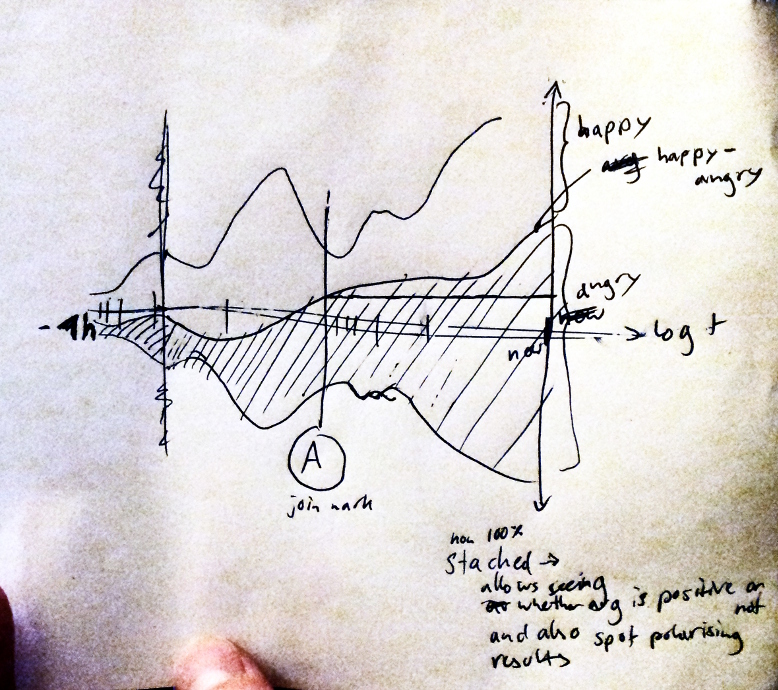 happy
happy-
angry
angry
now
-1h
log t
now
A
join mark
non 100%
Stacked →
allows seeing
whether avg is positive or
not
and also spot polarising
results